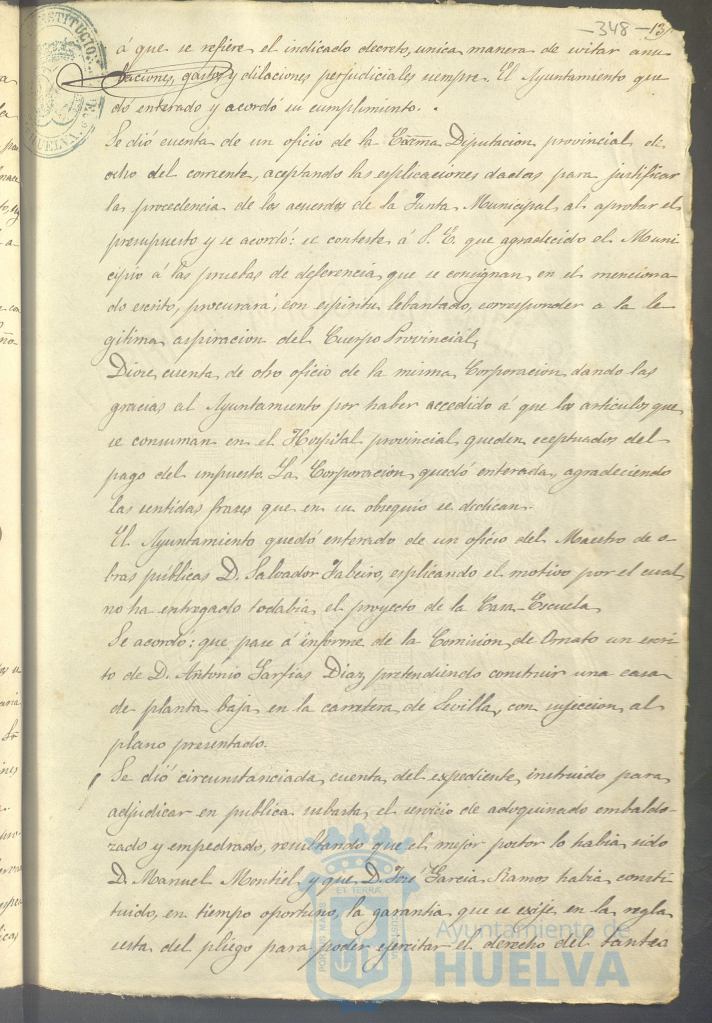 -348- 13
á que se refiere el indicado decreto, unica manera de evitar anu
laciones, gastos y dilaciones perjudiciales siempre. El Ayuntamiento que
dó enterado y acordó su cumplimiento.
Se dió cuenta de un oficio de la Excma Diputacion provincial de
ocho del corriente, aceptando las esplicaciones dadas para justificar
la procedencia de los acuerdos de la Junta Municipal al aprobar el
presupuesto y se acordó: se conteste á S. E. que agradecido el Muni
cipio á las pruebas de deferencia que se consignan en el menciona
do escrito, procurará, con espiritu lebantado, corresponder a la le
gitima aspiracion del Cuerpo Provincial.
Diose cuenta de otro oficio de la misma Corporacion dando las
gracias al Ayuntamiento por haber accedido á que los articulos que
se consuman en el Hospital provincial queden eceptuados del
pago del impuesto. La Corporacion quedó enterada, agradeciendo
las sentidas frases que en su obsequio se dedican.
El Ayuntamiento quedó enterado de un oficio del Maestro de o
bras publicas D. Salvador esplicando el motivo por el cual
no ha entregado todabia el proyecto de la Casa-Escuela
Se acordó: que pase á informe de la Comision de Ornato un escri
to de D. Antonio Garfias Diaz, pretendiendo construir una casa
de planta baja en la carretera de Sevilla, con sujeccion al
plano presentado.
Se dió circunstanciada cuenta del expediente instruido para
adjudicar en publica subasta, el servicio de adoquinado embaldo-
zado y empedrado, resultando que el mejor postor lo habia sido
D. Manuel Montiel, y que D. Jose Garcia Ramos habia consti
tuido, en tiempo oportuno, la garantia que se exije en la regla
sesta del pliego para poder ejercitar el derecho del tanteo
Ayuntamiento de
HUELVA